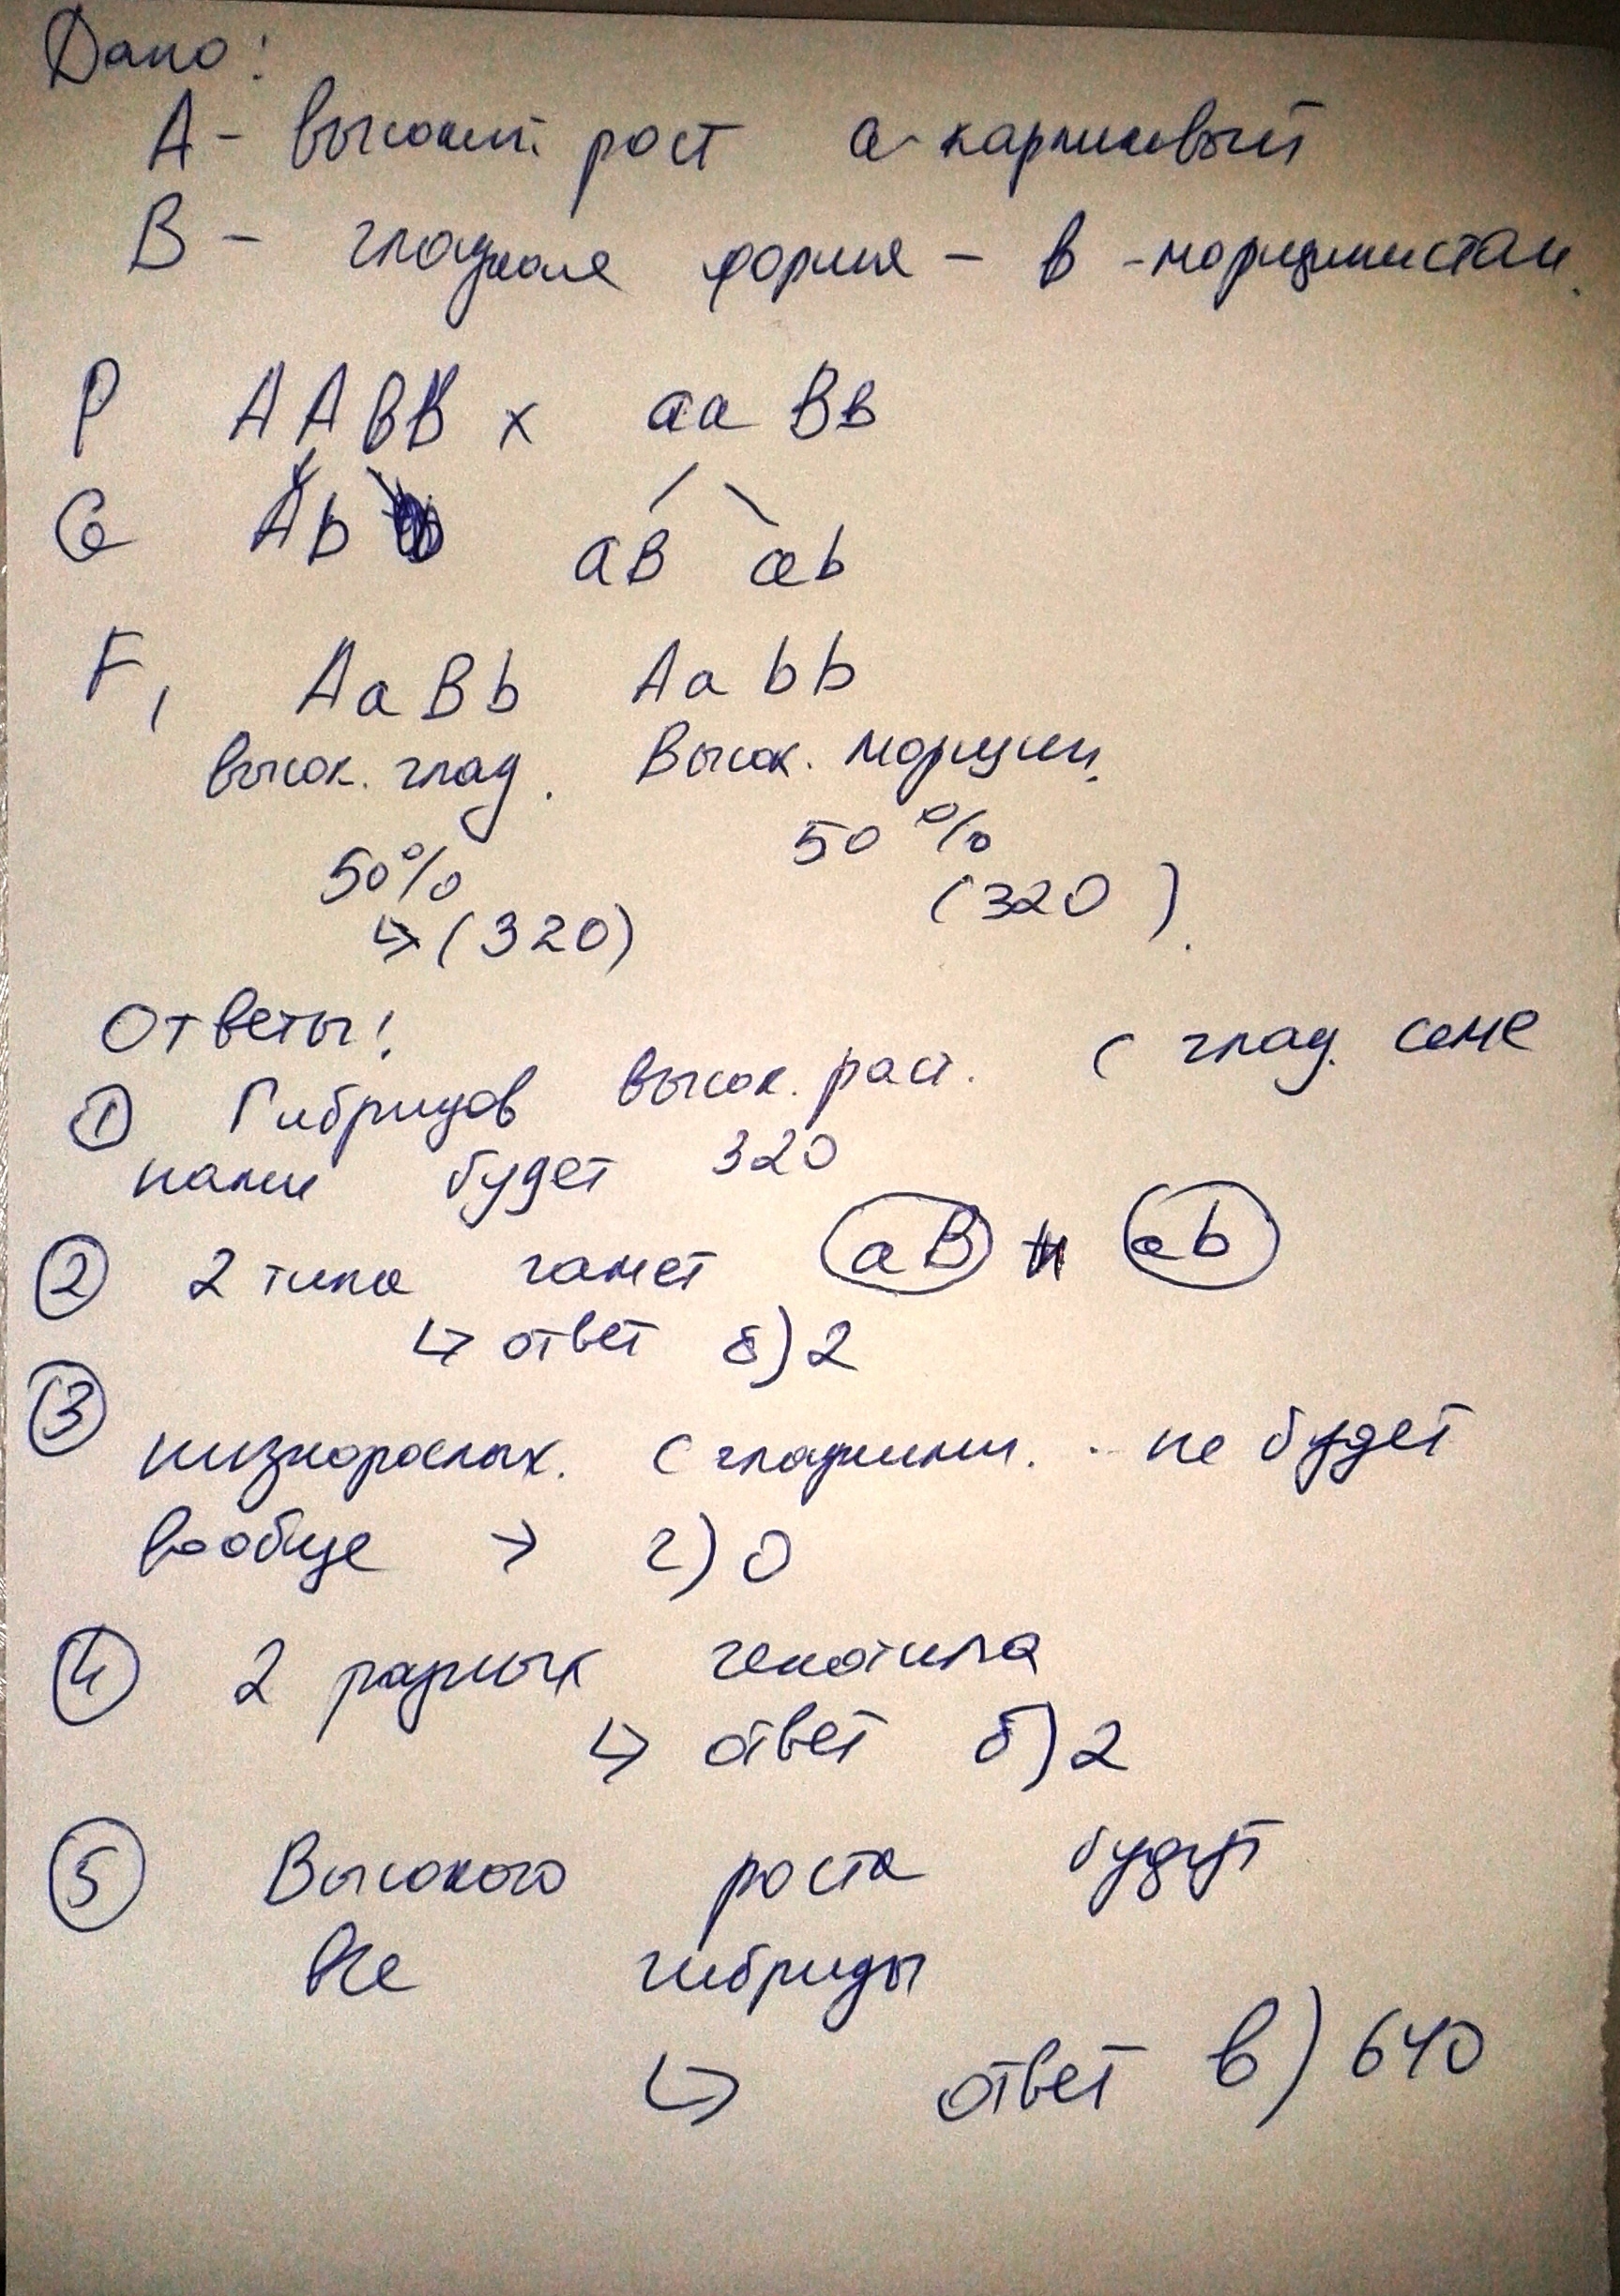 Дано:
А - высокий рост а - карликовый
В - гладкая форма - в - морщинистая.
P ААвв х аа Вв
G Аb аВ аb
F1 АаВb Ааbb
высок. глад. Высок. морщин.
50% 50%
↳ (320) (320).
Ответы:
① Гибридов высок. раст. с глад. семе
нами будет 320
② 2 типа гамет аВ и аb
↳ ответ б) 2
③
низкорослых. с гладкими. не будет
вообще → г) 0
④ 2 разных генотипа
↳ ответ б) 2
⑤ Высокого роста будут
все гибриды
↳ ответ в) 640